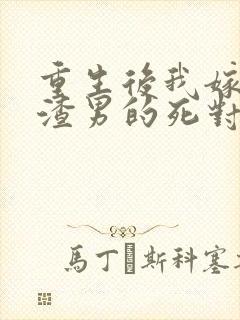 重生後我嫁
渣男的死對
馬丁斯科塞